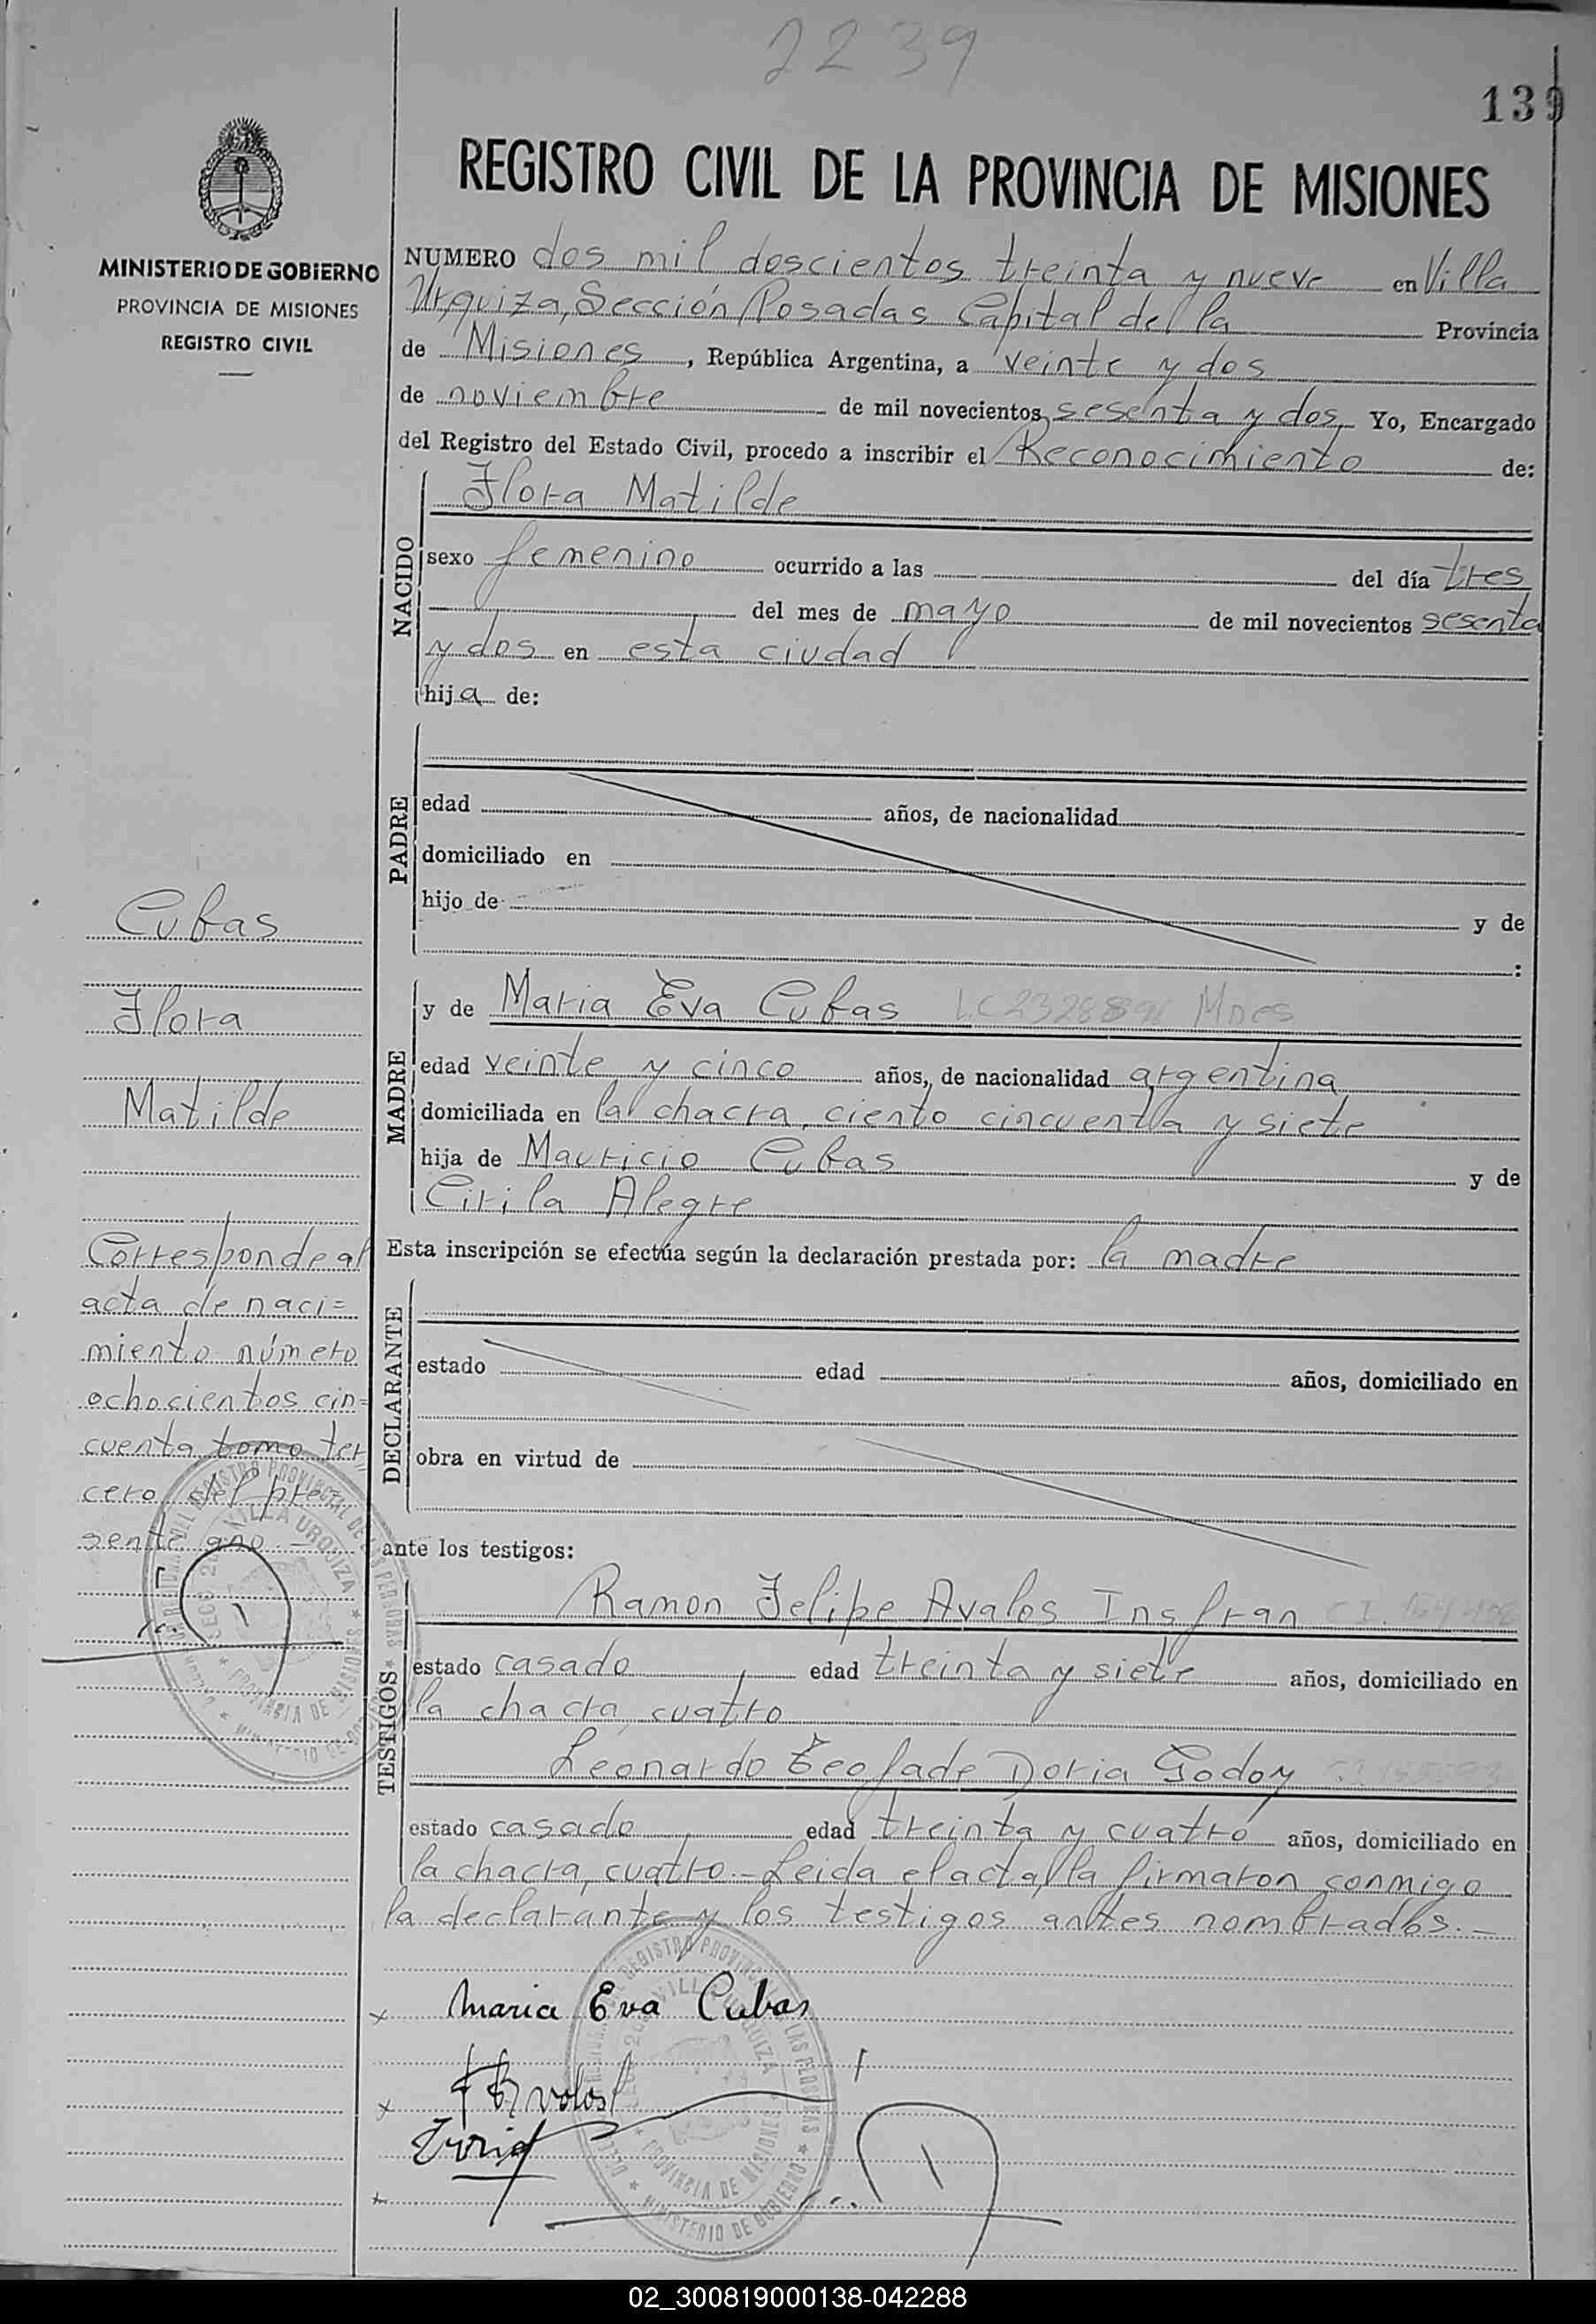 2239
139
REGISTRO CIVIL DE LA PROVINCIA DE MISIONES
MINISTERIO DE GOBIERNO
PROVINCIA DE MISIONES
REGISTRO CIVIL
NUMERO dos mil doscientos treinta y nueve en Villa
Urquiza, Sección Posadas Capital de la Provincia
de Misiones, República Argentina, a veinte y dos
de noviembre de mil novecientos sesenta y dos Yo, Encargado
del Registro del Estado Civil, procedo a inscribir el Reconocimiento de:
NACIDO
Flora Matilde
sexo femenino ocurrido a las del día tres
del mes de mayo de mil novecientos sesenta
y dos en esta ciudad
hija de:
PADRE
edad años, de nacionalidad
domiciliado en
hijo de y de
:
MADRE
y de Maria Eva Cubas L.C. Mnes
edad veinte y cinco años, de nacionalidad argentina
domiciliada en la chacra, ciento cincuenta y siete
hija de Mauricio Cubas y de
Cirila Alegre
Esta inscripción se efectúa según la declaración prestada por: la madre
DECLARANTE
estado edad años, domiciliado en
obra en virtud de
ante los testigos:
TESTIGOS
Ramon Felipe Avalos Insfran C.I.
estado casado edad treinta y siete años, domiciliado en
la chacra cuatro
Leonardo Doria Godoy
estado casado edad treinta y cuatro años, domiciliado en
la chacra, cuatro.- Leida el acta, la firmaron conmigo
la declarante y los testigos antes nombrados.-
Maria Eva Cubas
Cubas
Flora
Matilde
Corresponde al
acta de naci=
miento número
ochocientos cin=
cuenta tomo ter
cero del pre
sente año.-
VILLA URQUIZA
PROVINCIA DE MISIONES
MINISTERIO DE GOBIERNO
02_300819000138-042288